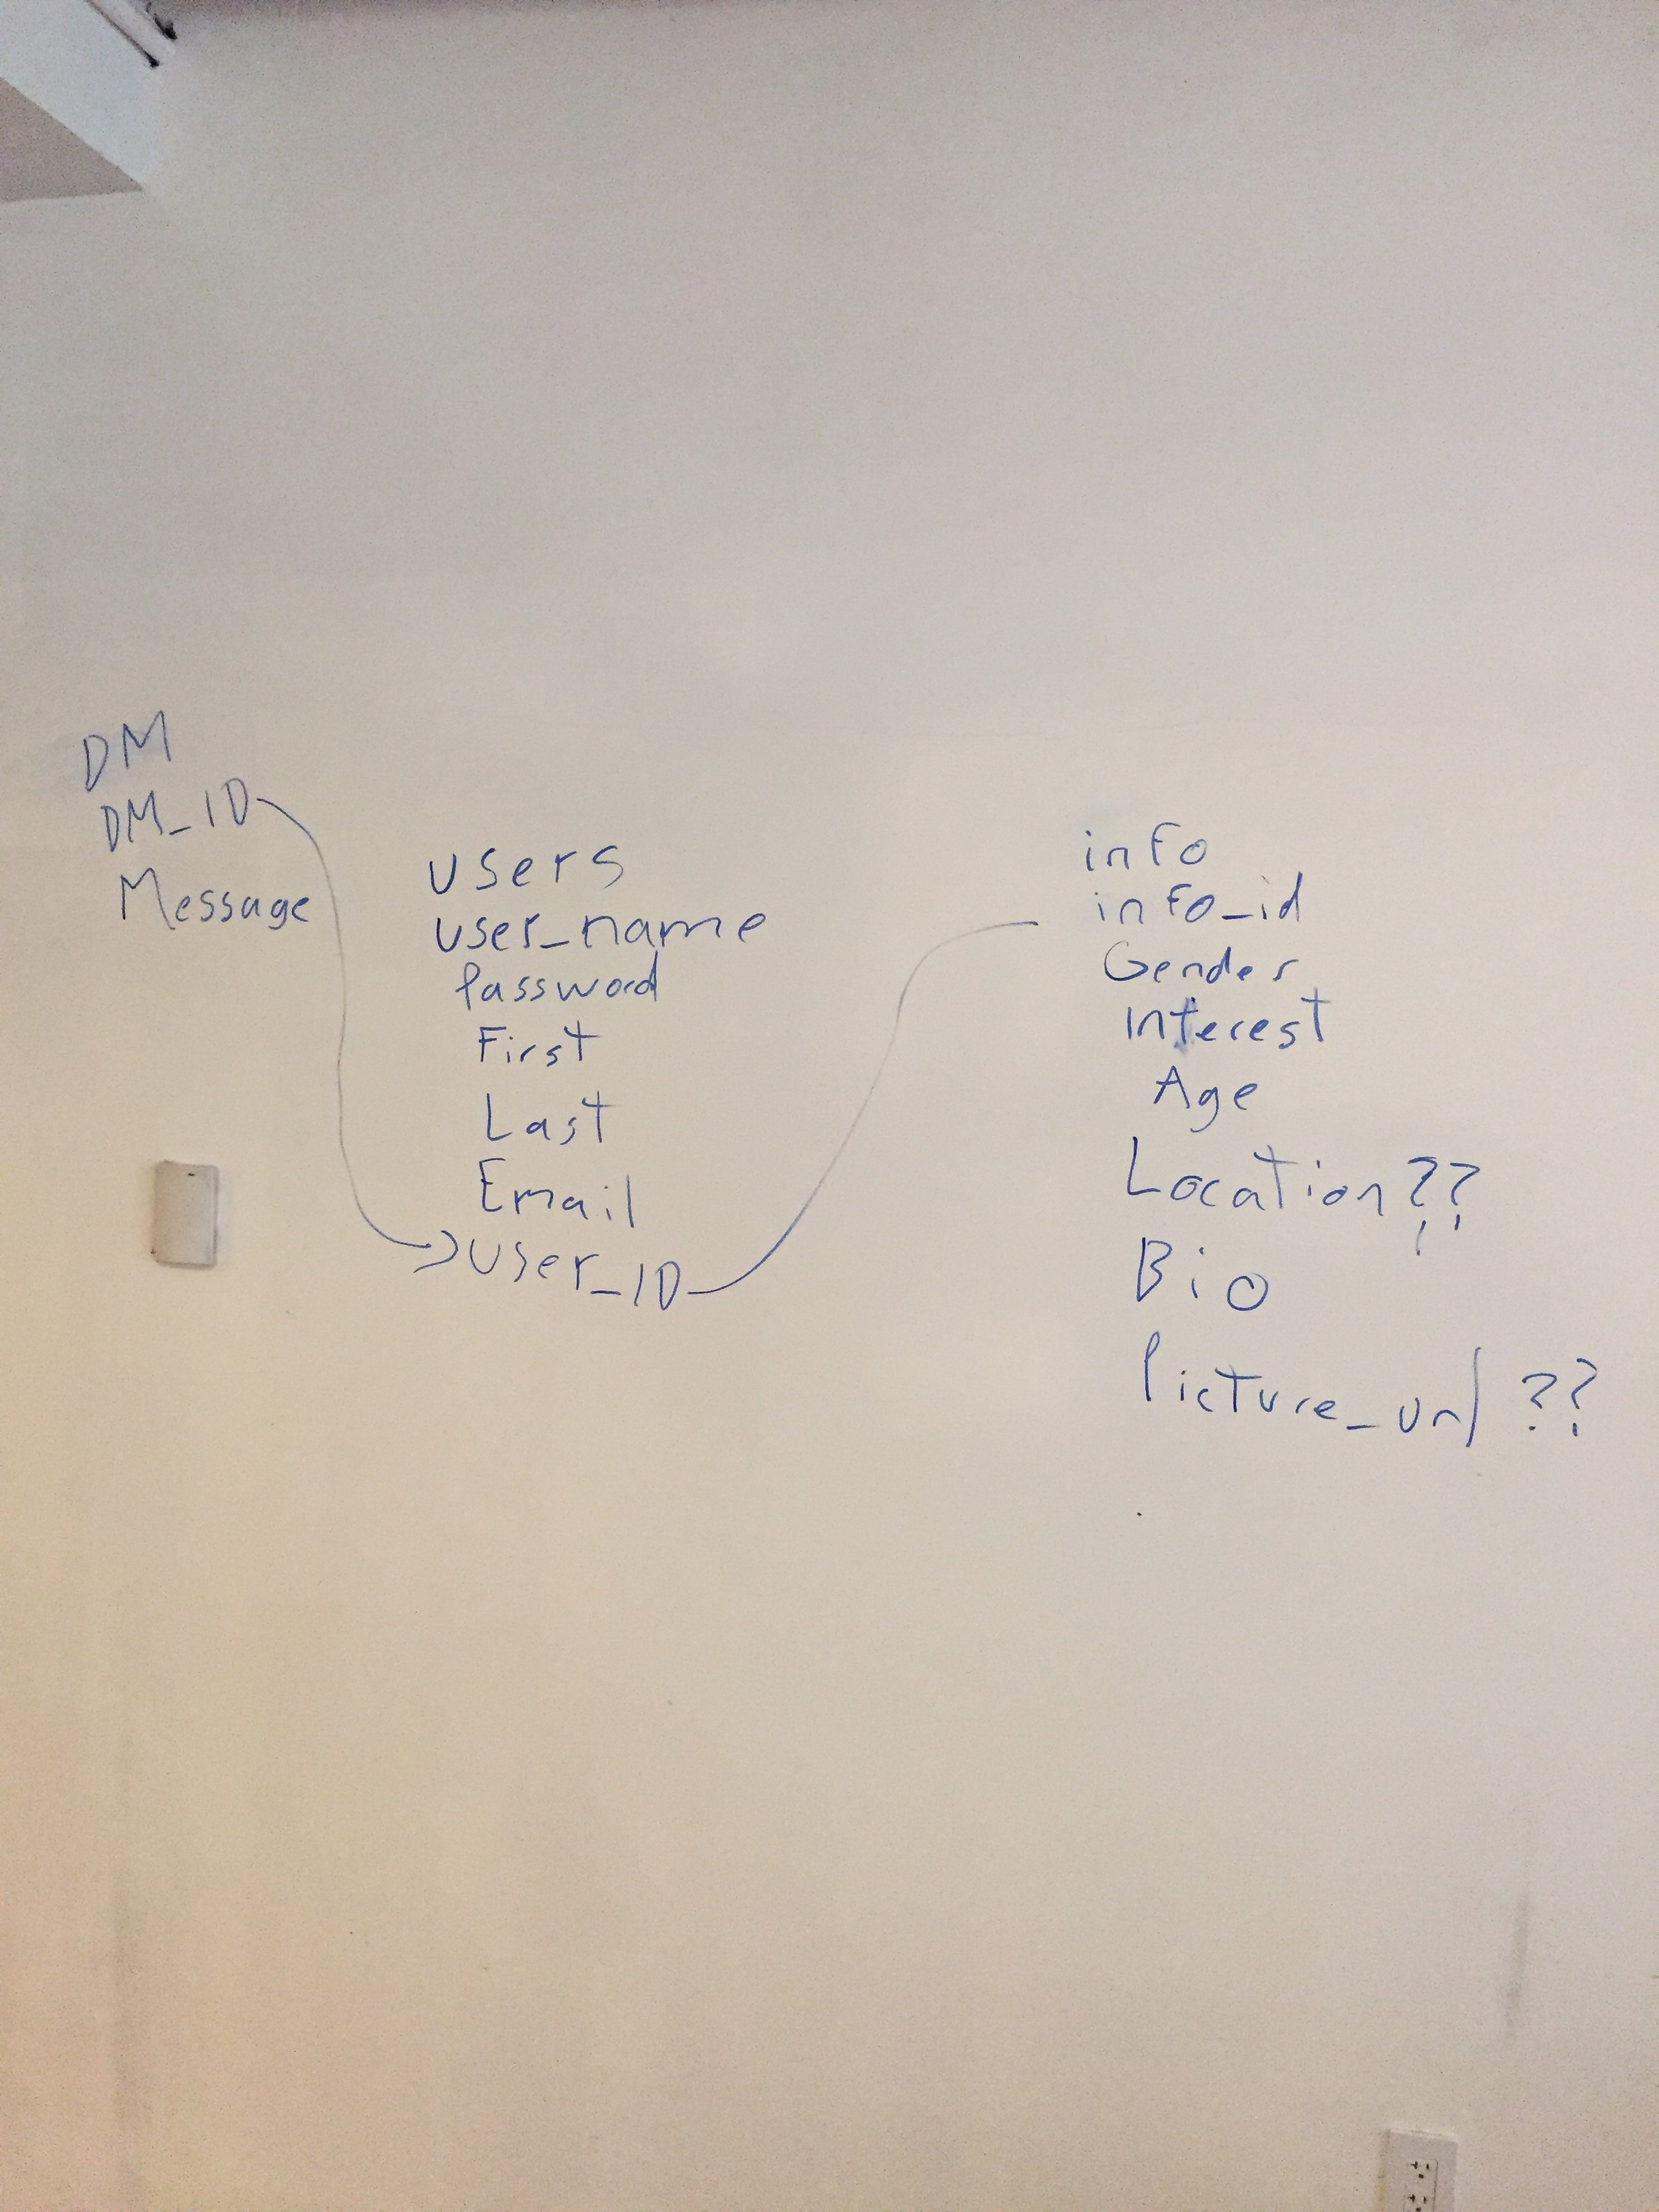 DM
DM_ID
Message
users
user_name
Password
First
Last
Email
User_ID
info
info_id
Gender
Interest
Age
Location??
Bio
Picture_url ??